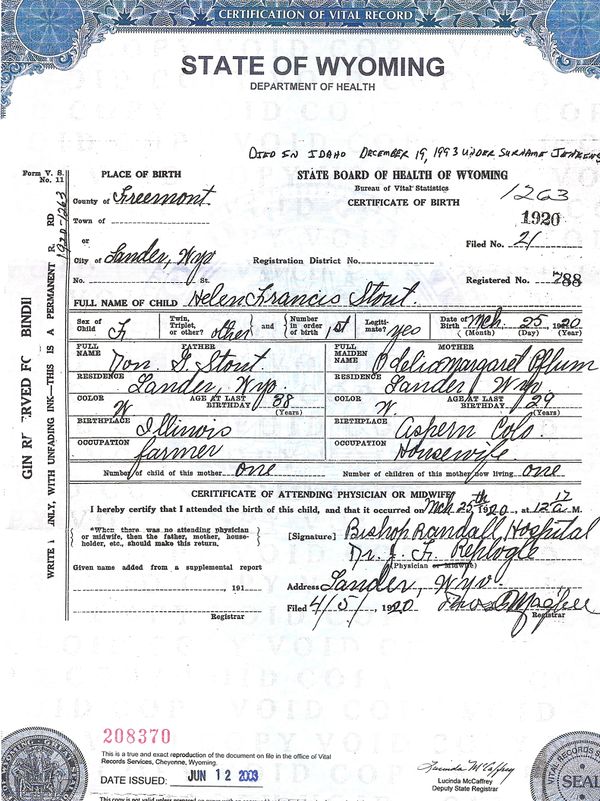 CERTIFICATION OF VITAL RECORD
STATE OF WYOMING
DEPARTMENT OF HEALTH
DIED IN IDAHO DECEMBER 19, 1993 UNDER SURNAME JENKENS
Form V. S. No. 11
PLACE OF BIRTH
STATE BOARD OF HEALTH OF WYOMING
Bureau of Vital Statistics
CERTIFICATE OF BIRTH
1263
1920
County of Freemont
Town of
or
City of Lander, Wyo
Registration District No.
Filed No. 21
No. St.
Registered No. 788
FULL NAME OF CHILD Helen Francis Stout.
Sex of Child F
Twin, Triplet, or other? other
and
Number in order of birth 1st
Legitimate? yes
Date of Birth Mch. 25, 1920
(Month) (Day) (Year)
FATHER
FULL NAME Don. G. Stout.
RESIDENCE Lander, Wyo.
COLOR W
AGE AT LAST BIRTHDAY 38
(Years)
BIRTHPLACE Illinois
OCCUPATION farmer
MOTHER
FULL MAIDEN NAME Odelia Margaret Pflum
RESIDENCE Lander, Wyo.
COLOR W.
AGE AT LAST BIRTHDAY 29
(Years)
BIRTHPLACE Aspern Colo.
OCCUPATION Housewife
Number of child of this mother one
Number of children of this mother now living one
CERTIFICATE OF ATTENDING PHYSICIAN OR MIDWIFE
I hereby certify that I attended the birth of this child, and that it occurred on Mch 25th 1920, at 12 17 a M.
*When there was no attending physician
or midwife, then the father, mother, house-
holder, etc., should make this return.
[Signature] Bishop Randall Hospital
Dr. J. F. Replogle
(Physician or Midwife)
Given name added from a supplemental report
, 191
Registrar
Address Lander, Wyo
Filed 4/5/, 1920
Registrar
1920-1263
WRITE ONLY, WITH UNFADING INK—THIS IS A PERMANENT R. RD
GIN RE ERVED FO BINDI
208370
This is a true and exact reproduction of the document on file in the office of Vital
Records Services, Cheyenne, Wyoming.
DATE ISSUED: JUN 12 2003
Lucinda McCaffrey
Lucinda McCaffrey
Deputy State Registrar
SEAL